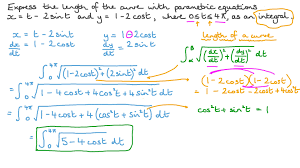 Express the length of the curve with parametric equations
x = t - 2sint and y = 1 - 2cost, where 0 ≤ t ≤ 4π, as an integral.
x = t - 2sint   y = 1 - 2cost
dx/dt = 1 - 2cost   dy/dt = 2sint
length of a curve
∫_α^β √((dx/dt)² + (dy/dt)²) dt
∫_0^{4π} √((1-2cost)² + (2sint)²) dt
(1-2cost)(1-2cost)
= 1 - 2cost - 2cost + 4cos²t
= ∫_0^{4π} √(1 - 4cost + 4cos²t + 4sin²t) dt
= ∫_0^{4π} √(1 - 4cost + 4(cos²t + sin²t)) dt
cos²t + sin²t = 1
= ∫_0^{4π} √(5 - 4cost) dt